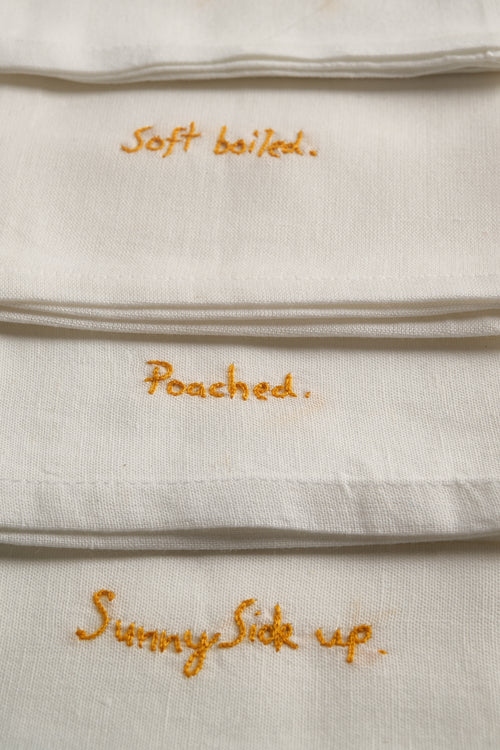 Soft boiled.
Poached.
Sunny Side up.